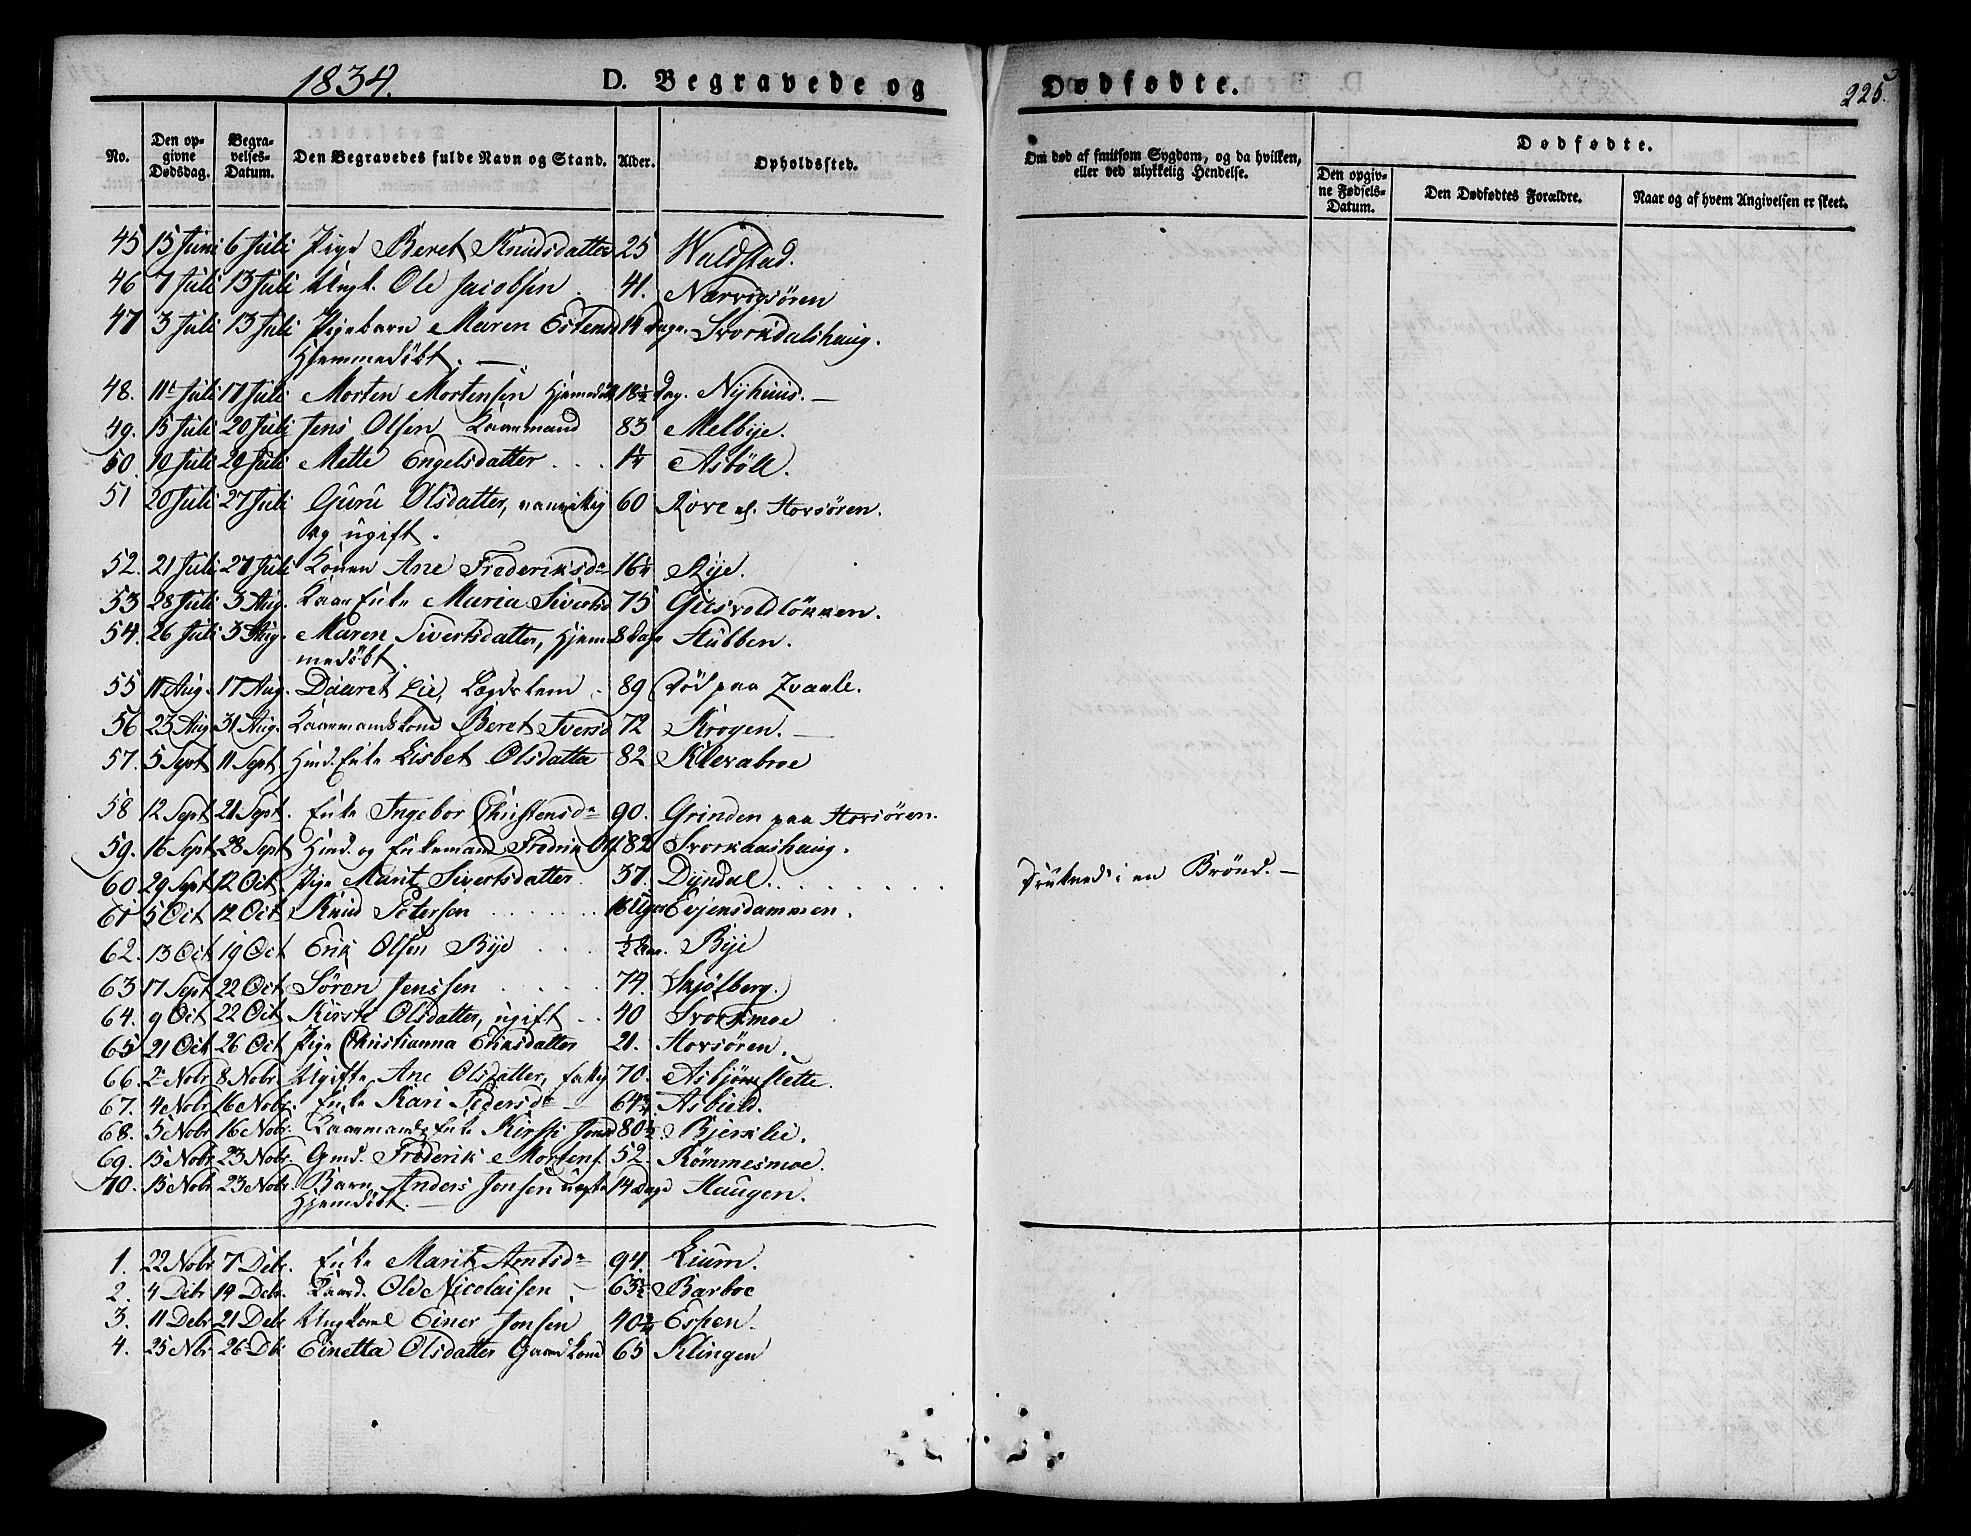 1834.
D. Begravede og
Dødfødte.
225.
No.
Den opgivne Dødsdag.
Begravelses-Datum.
Den Begravedes fulde Navn og Stand.
Alder.
Opholdssted.
Om død af smitsom Sygdom, og da hvilken, eller ved ulykkelig Hendelse.
Dødfødte.
Den opgivne Fødsels-Datum.
Den Dødfødtes Forældre.
Naar og af hvem Angivelsen er skeet.
45 15 Juni 6 Juli Pige Beret Knudsdatter 25 Waldstad.
46 7 Juli 13 Juli Ungk. Ole Jacobsen 41. Nærvigsören
47 3 Juli 13 Juli Pigebarn Maren Estensd 14 Dage. Svorkdalshaug.
Hjemmedöbt.
48. 11 Juli 17 Juli Morten Mortensen Hjemedöbt 18½ Dag. Nyhuus.
49. 15 Juli 20 Juli Jens Olsen Kaarmand 83 Melbye.
50. 10 Juli 20 Juli Mette Engelsdatter Asböll.
51 20 Juli 27 Juli Guru Olsdatter, vanvitig 60 Rove Horsören.
og ugift.
52. 21 Juli 27 Juli Konen Ane Frederiksdr 16¼ Rye.
53 28 Juli 3 Aug. Kaar Enke Maria Sivertsd 75 Giisvoldlökken.
54. 26 Juli 3 Aug. Maren Sivertsdatter, Hjem 8 Dage Stubben.
medöbt.
55 11 Aug. 17 Aug. Daaret Lie, Lægdslem 89 död paa Qvaale.
56 23 Aug 31 Aug. Kaarmandskone Beret Iversd 72 Krogen.
57. 5 Sept 11 Sept Huusm. Enke Lisbet Olsdatter 82 Klevabroe
58 12 Sept 21 Sept. Enke Ingebor Christensdr 90. Grinden paa Horsören.
59. 16 Sept 28 Sept Huusm. og Enkemand Fredrik Ols 82 Svorkaashaug.
60 29 Sept 12 Oct. Pige Marit Sivertsdatter 37. Dyndal. Druknede i en Brönd.
61 5 Oct 12 Oct Knud Petersen 16 Uger Evjensdammen.
62. 13 Oct 19 Oct Erik Olsen Bye ½ Aar. Bye
63 17 Sept 22 Oct Sören Jenssen 74. Skjölberg.
64. 9 Oct 22 Oct Kirsti Olsdatter, ugift 40 Svorkmoe
65 21 Oct 26 Oct Pige Christianna Eriksdatter 21. Horsören.
66. 2 Nobr 8 Nobr. Ugifte Ane Olsdatter, fattig 70. Asbjönslette.
67. 4 Nobr 16 Nobr. Enke Kari Pedersdr 64¾ Asbield.
68. 5 Nobr 16 Nobr. Kaarmands Enke Kirsti Jonsd 80½ Bjerklie.
69. 15 Nobr 23 Nobr. Gmd. Frederik Mortens. 52. Römmesmoe.
70. 15 Nobr 23 Nobr. Barn Anders Jonsen uægte 14 Dage Haugen.
Hjemdöbt.
1. 22 Nobr 7 Debr. Enke Marit Arntsdr 94. Lium.
2. 4 Debr 14 Debr. Kaard. Ole Nicolaisen 63½ Barboe
3. 11 Debr 21 Debr Ungkarl Einer Jonsen 40¾ Espen.
4. 25 Nbr 26 Db Einetta Olsdatter Gaardkone 65 Klingen